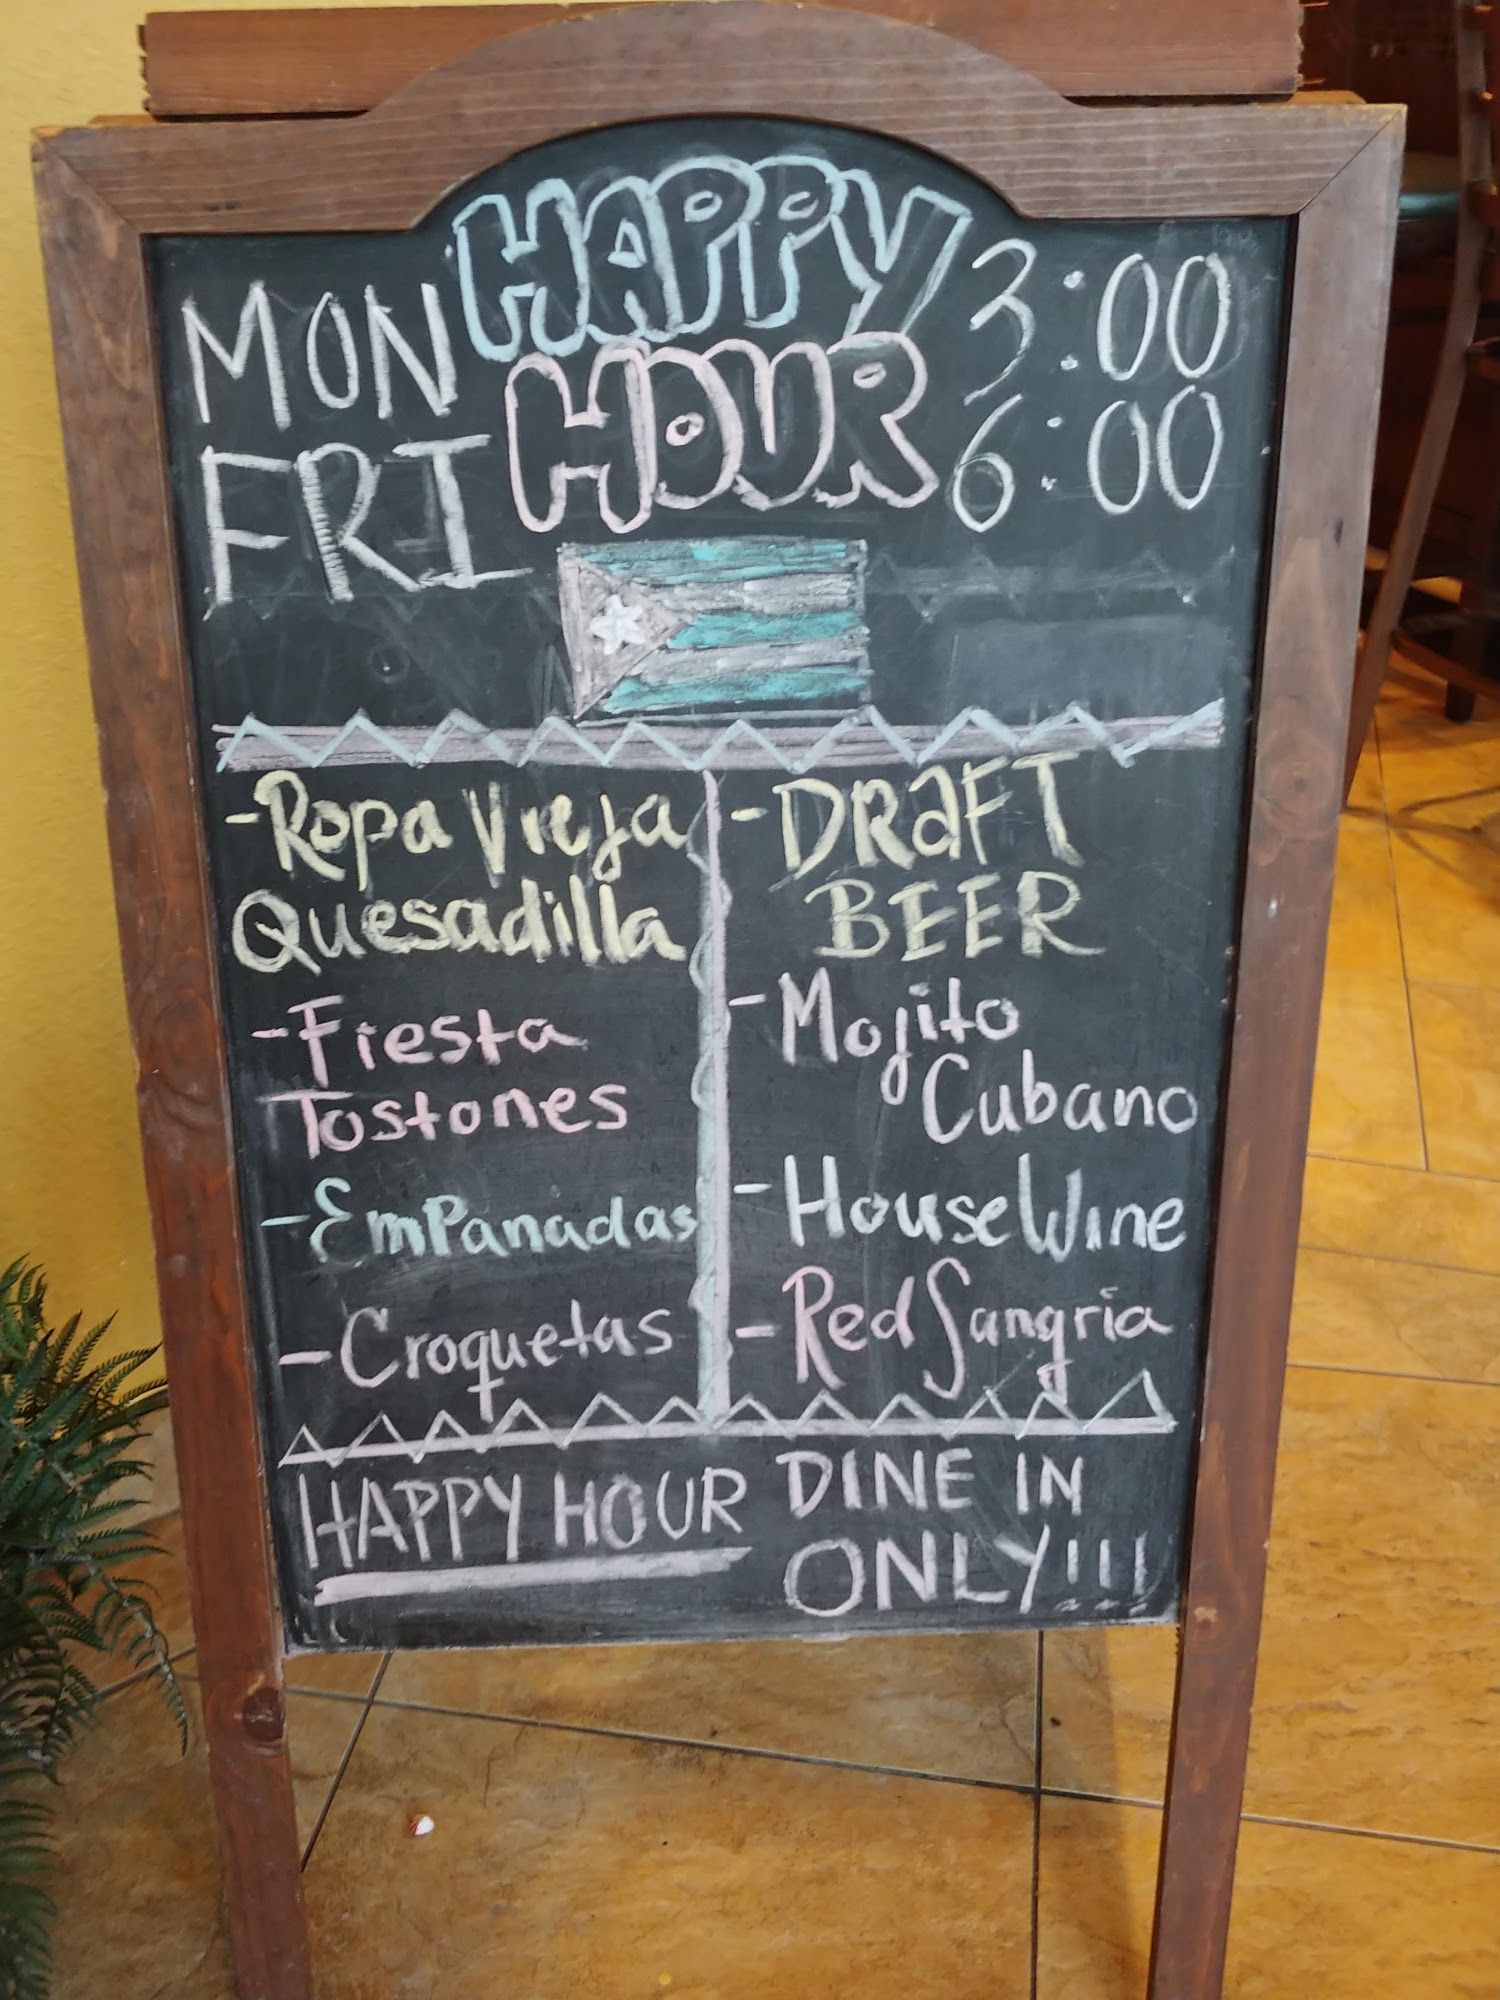 HAPPY
HOUR
MON
FRI
3:00
6:00
-Ropa Vieja
Quesadilla
-Fiesta
Tostones
-EmPanadas
-Croquetas
-DRaFT
BEER
-Mojito
Cubano
-House Wine
-Red Sangria
HAPPY HOUR DINE IN
ONLY!!!